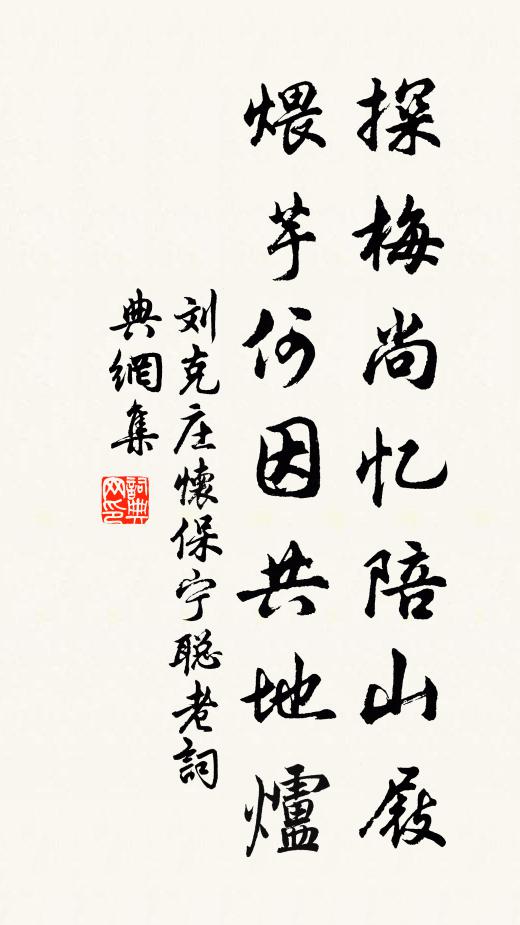 探梅尚忆陪山屐
煨芋何因共地爐
刘克庄懷保宁聪老詞
典網集
詞典网印